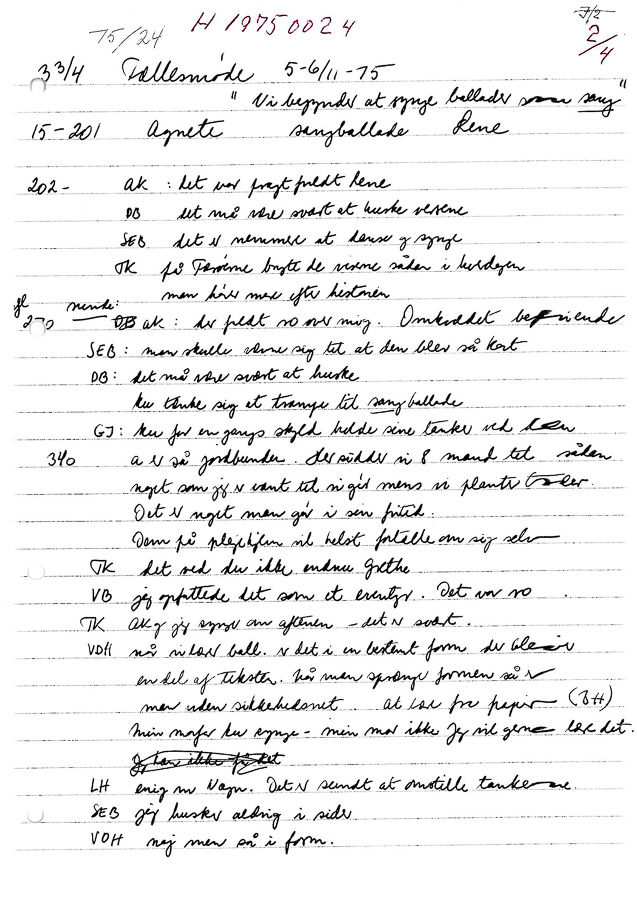 75/24 H 19750024 J/2
2/4
3 3/4 Fællesmøde 5-6/11-75
"Vi begynder at synge ballader som sang"
15-201 Agnete sangballade Lene
202- AK : det var fragtfuldt Lene
DB det må være svært at huske versene
SEB det er nemmere at danse og synge
TK på Færøerne brugte de viserne sådan i hverdagen
man hører mere efter historien
gl nende:
270 AK : der faldt ro over mig. Omkvædet befriende
SEB : man skulle vænne sig til at den blev så kort
DB : det må være svært at huske
ku tænke sig et trampe til sangballade
GJ : ku for en gangs skyld holde sine tanker ved den
340 a er så jordbunden. Her sidder vi 8 mand til sådan
noget som jeg er vant til vi gør mens vi planter træer.
Det er noget man gør i sin fritid.
Dem på plejehjem vil helst fortælle om sig selv
TK det ved du ikke endnu Grethe
VB jeg opfattede det som et eventyr. Det var ro
TK AK og jeg synger om aftenen - det er svært.
VDH når vi lærer ball. er det i en bestemt form der bliver
en del af teksten. Når man sprænger formen så er
man uden sikkerhedsnet. at lære fra papir (BH)
Min morfar ku synge - min mor ikke Jeg vil gerne lære det.
Jeg kan ikke få det
LH enig m Vagn. Det er sundt at omstille tankerne.
SEB jeg husker aldrig i sider
VDH nej men så i form.